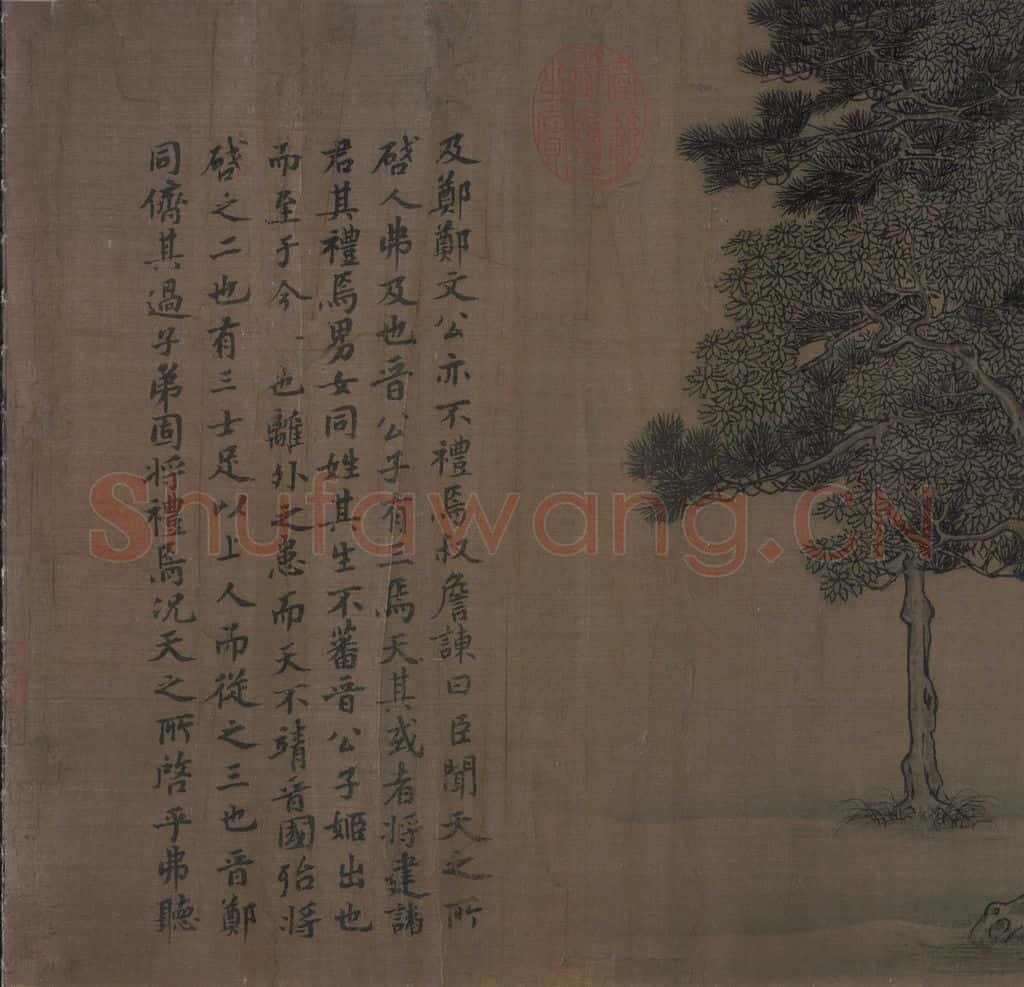 及鄭鄭文公亦不禮焉叔詹諫曰臣聞天之所
啓人弗及也晉公子有三焉天其或者將建諸
君其禮焉男女同姓其生不蕃晉公子姬出也
而至于今也離外之患而天不靖晉國殆將
啓之二也有三士足以上人而從之三也晉鄭
同儕其過子弟固將禮焉況天之所啓乎弗聽
Shufawang.CN